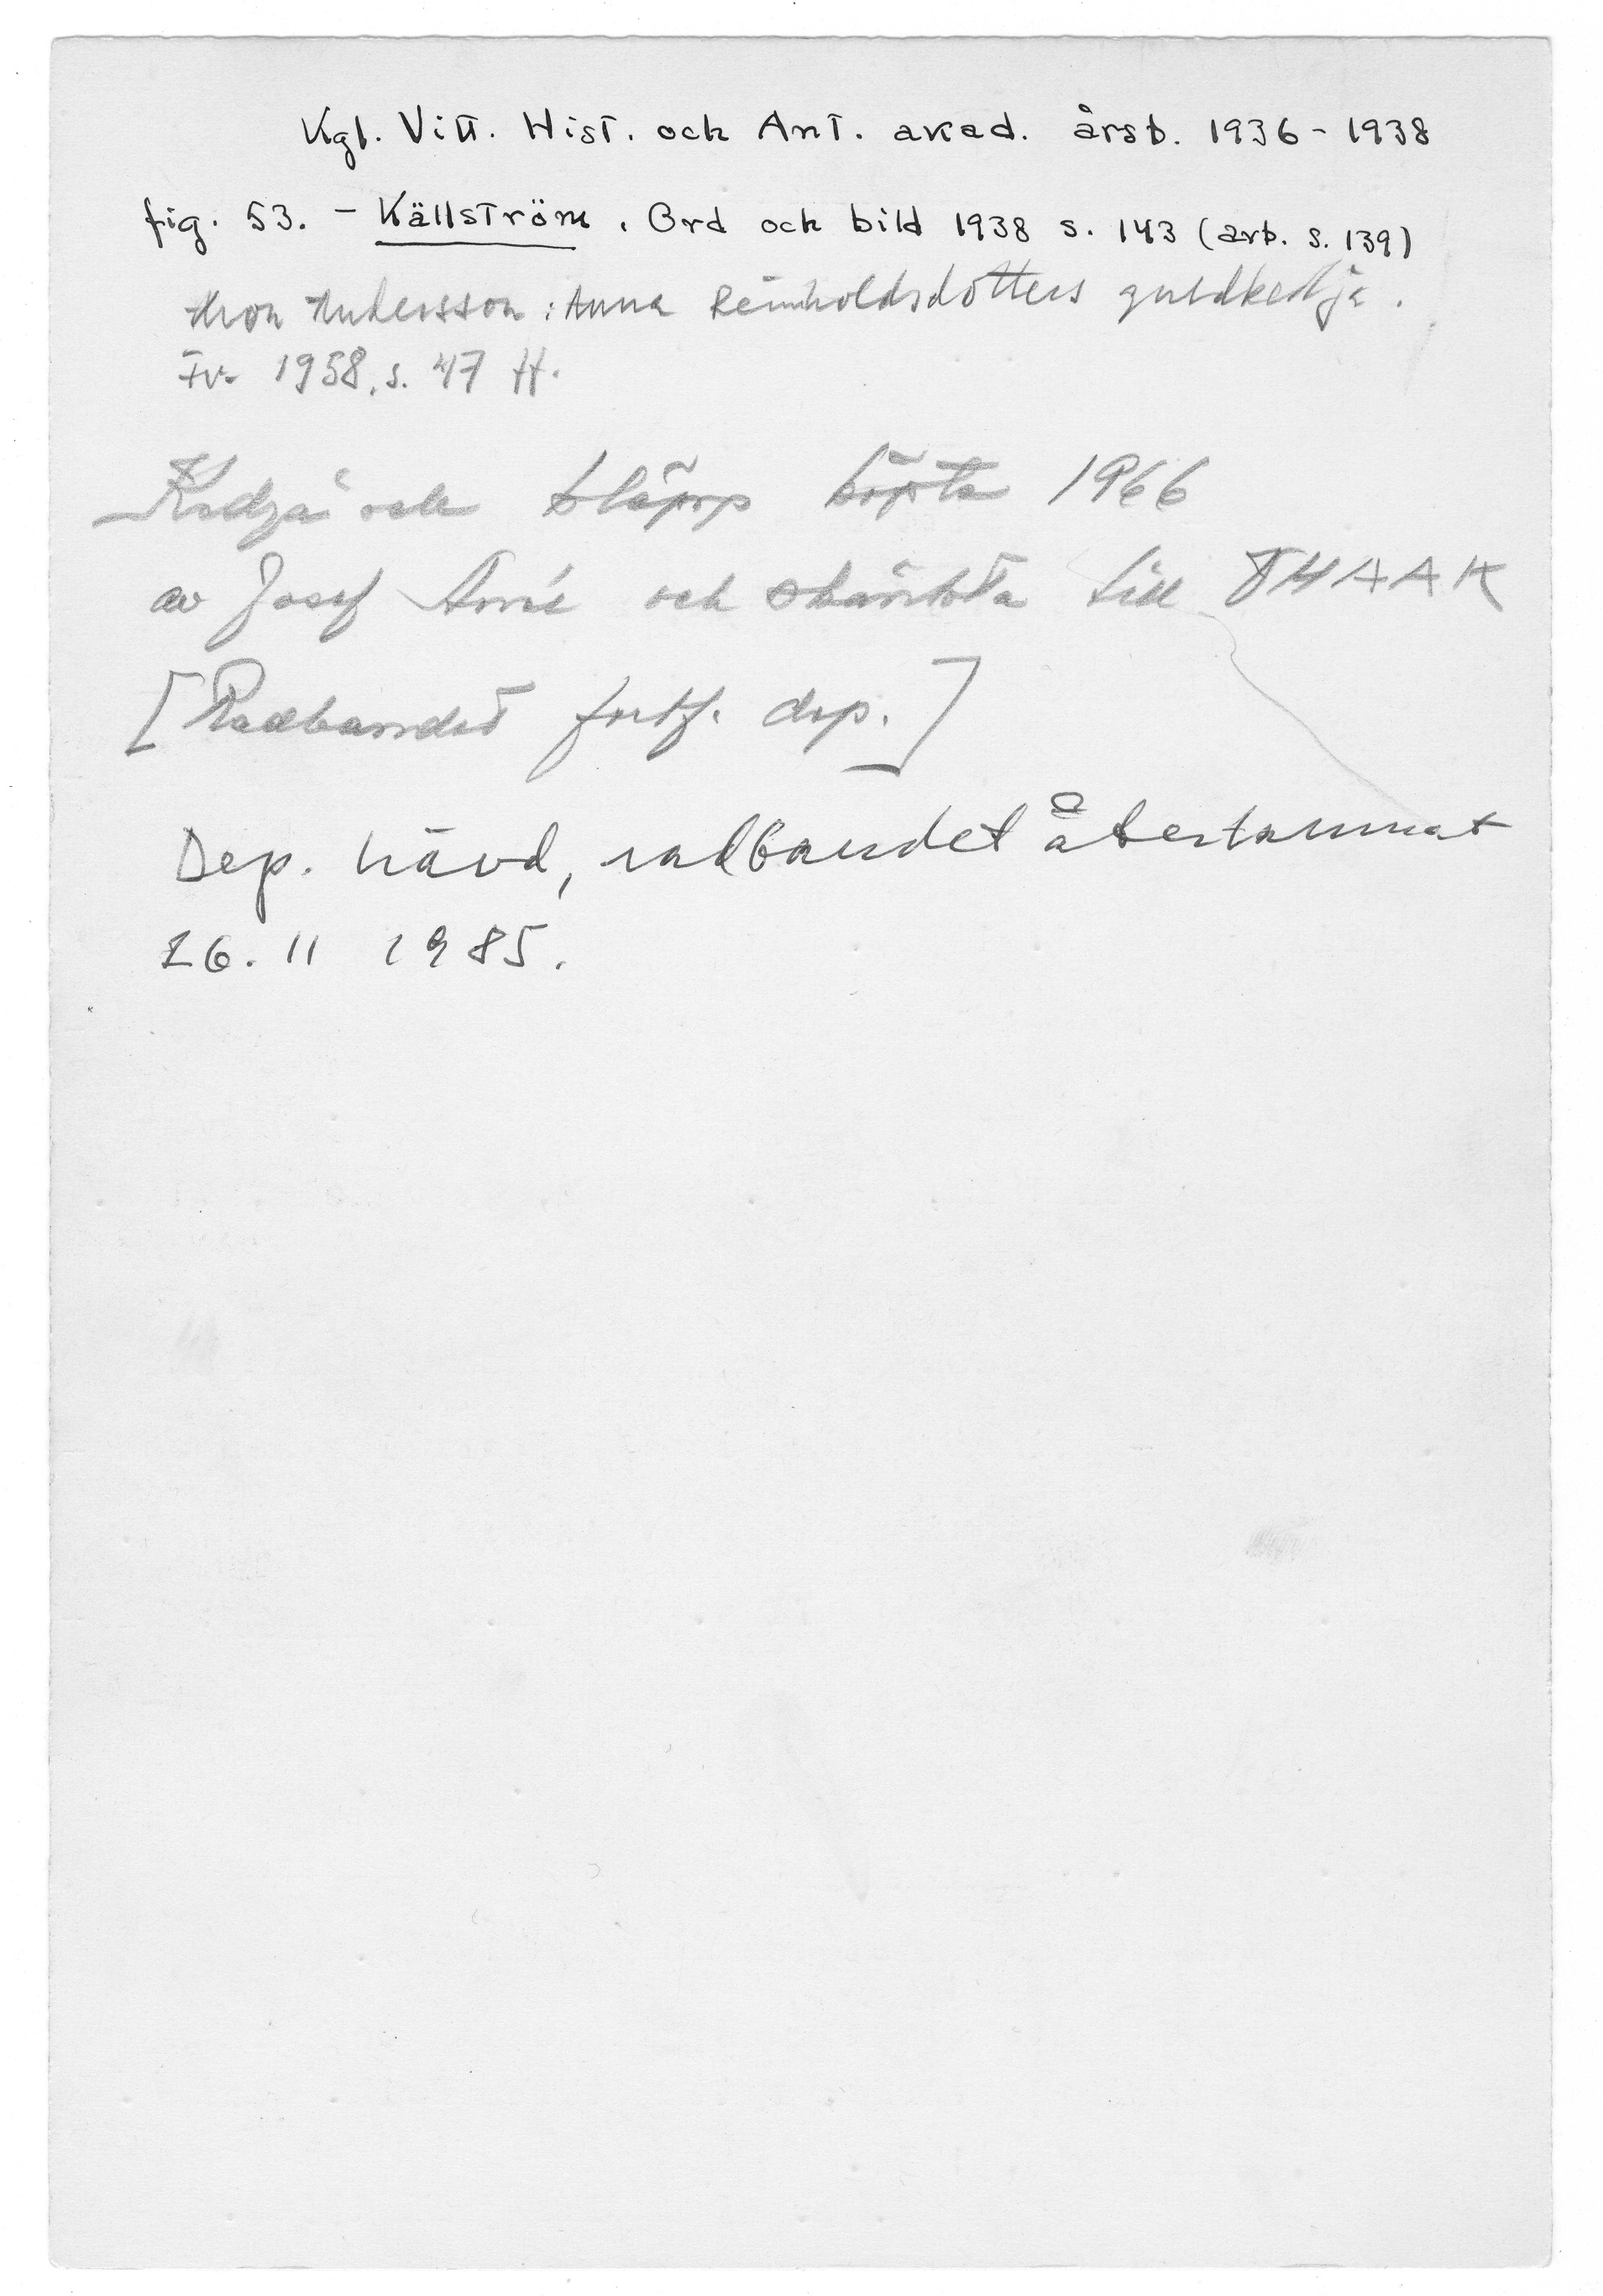 Kgl. Vitt. Hist. och Ant. akad. årsb. 1936-1938
fig. 53. - Källström. Ord och bild 1938 s. 143 (avb. s. 139)
Aron Andersson: Anna Reinholdsdotters guldkedja.
Fv. 1958, s. 47 ff.
Kedja och släpp köpta 1966
av Josef Arné och skänkta till VHAAK
[Radbandet fortf. dep.]
Dep. hävd, radbandet återtaumat
26. 11 1985.